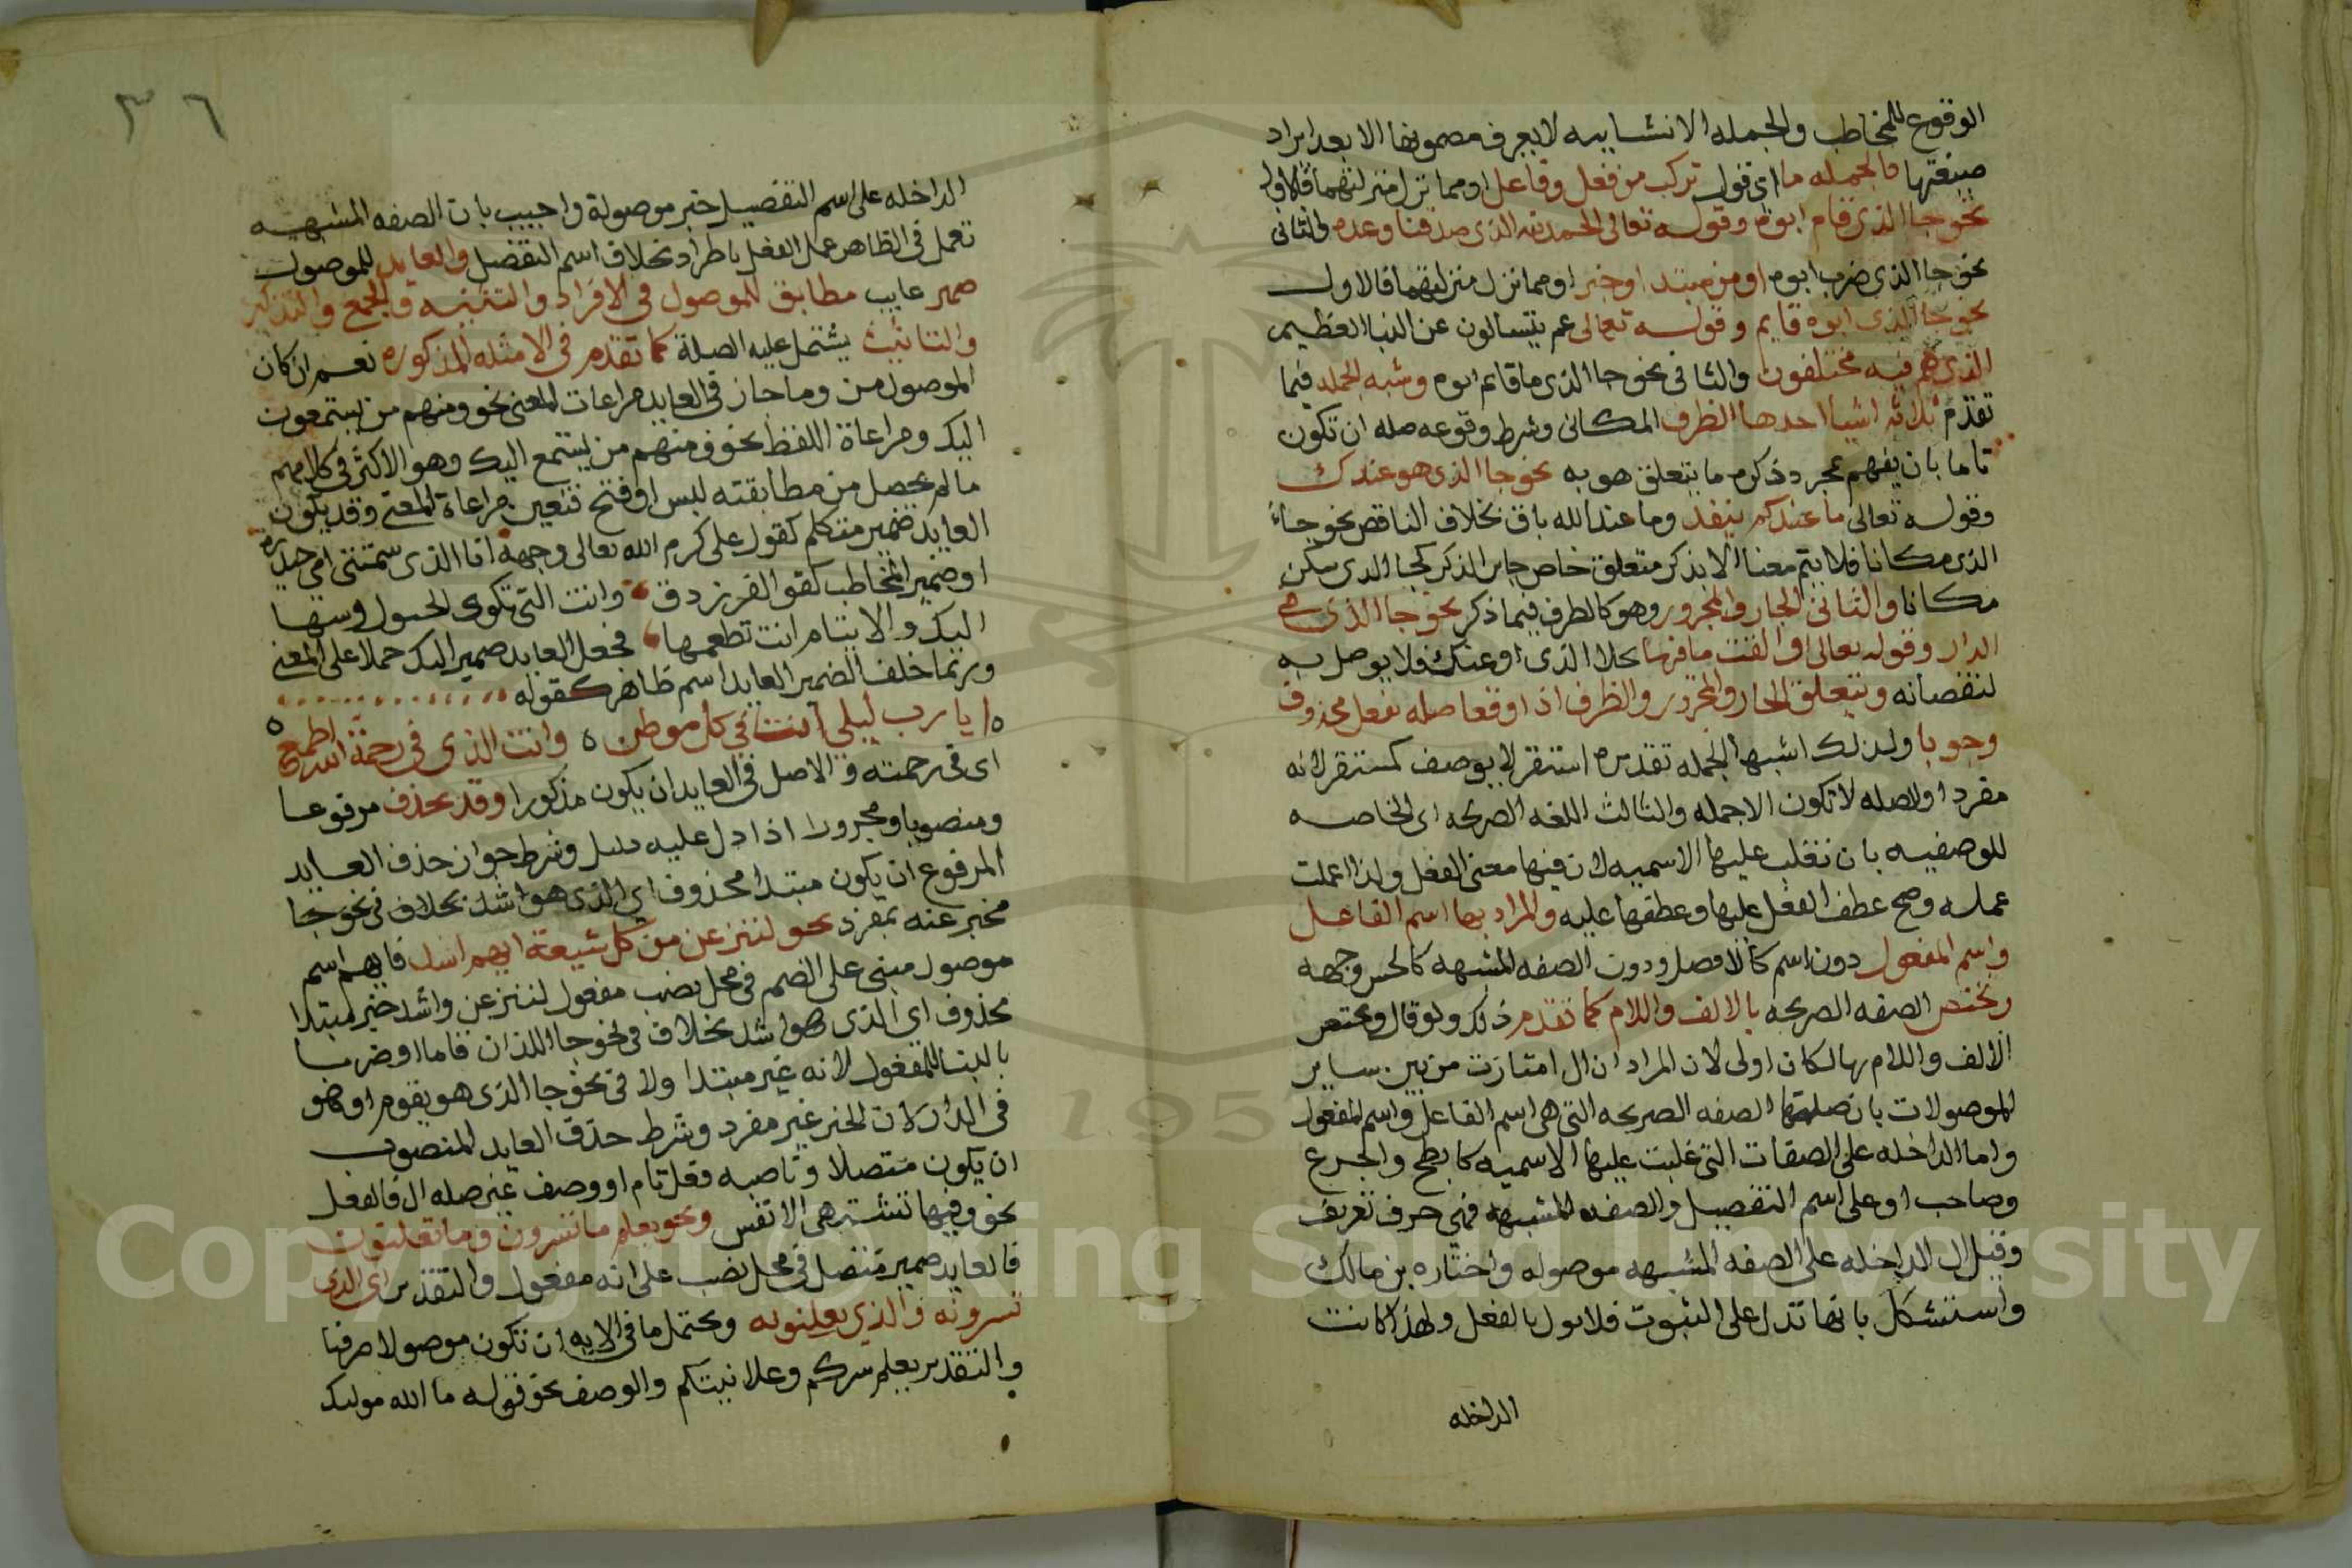 الوقوع للمخاطب والجمله الانشاييه لا يعرف مضمونها الا بعد ايراد
صيغتها فالجمله ما اى قول تركب من فعل وفاعل او مما نزل منزلتهما فالاول
نحو جا الذى قام ابوه وقوله تعالى الحمد لله الذى صدقنا وعده والثانى
نحو جا الذى ضرب ابوه او من مبتدا وخبر او مما نزل منزلتهما فالاول
نحو جا الذى ابوه قايم وقوله تعالى عم يتسالون عن النبا العظيم
الذى هم فيه مختلفون والثانى نحو جا الذى ما قايم ابوه وشبه الجمله فيما
تقدم ثلاثه اشيا احدها الظرف المكانى وشرط وقوعه صله ان تكون
تاما بان يفهم بمجرد ذكره ما يتعلق هو به نحو جا الذى هو عندك
وقوله تعالى ما عندكم ينفد وما عند الله باق بخلاف الناقص نحو جاء
الذى مكانا فلا يتم معنا الا بذكر متعلق خاص جايز الذكر كجا الذى سكن
مكانا والثانى الجار والمجرور وهو كالظرف فيما ذكر نحو جا الذى فى
الدار وقوله تعالى والقت ما فيها بخلا الذى او عنك فلا يوصل به
لنقصانه ويتعلق الجار والمجرور والظرف اذا وقعا صله بفعل محذوف
وجوبا ولذلك اشبها الجمله تقديره استقر لا بوصف كمستقر لانه
مفرد اولصله لا تكون الا جمله والثالث اللغه الصريحه اى الخاصه
للوصفيه بان تغلب عليها الاسميه لان فيها معنى الفعل ولذا عملت
عمله وصح عطف الفعل عليها وعطفها عليه والمراد بها اسم الفاعل
واسم المفعول دون اسم كالافضل ودون الصفه المشبهه كالحسن وجهه
وتختص الصفه الصريحه بالالف واللام كما تقدم ذكر ولو قال ويختص
الالف واللام بها لكان اولى لان المراد ان ال امتازت من بين ساير
الموصولات بان صلتها الصفه الصريحه التى هى اسم الفاعل واسم المفعول
واما الداخله على الصفات التى غلبت عليها الاسميه كابطح والجرع
وصاحب او على اسم التفضيل والصفه المشبهه فهى حرف تعريف
وقيل ال الداخله على الصفه المشبهه موصوله واختاره بن مالك
واستشكل بانها تدل على الثبوت فلا يول بالفعل ولهذا كانت
الداخله
٣٦
الداخله على اسم التفضيل خبر موصولة واجيب بان الصفه المشبهه
تعمل فى الظاهر عمل الفعل باطراد بخلاف اسم التفضيل والعايد للموصول
ضمير غايب مطابق للموصول فى الافراد والتثنيه والجمع والتذكير
والتانيث يشتمل عليه الصلة كما تقدم فى الامثله المذكوره نعم ان كان
الموصول من وما جاز فى العايد مراعات المعنى نحو ومنهم من يستمعون
اليك ومراعاة اللفظ نحو ومنهم من يستمع اليك وهو الاكثر فى كلامهم
ما لم يحصل من مطابقته لبس او قبح فتعين مراعاة المعنى وقد يكون
العايد ضمير متكلم كقول على كرم الله تعالى وجهه انا الذى سمتنى امى حيدره
او ضمير المخاطب كقو الفرزدق وانت التى تكوى الحول وسها
اليك والايتام انت تطعمها فجعل العايد ضمير اليك حملا على المعنى
وربما خلف الضمير العايد اسم ظاهر كقوله
ايا رب ليلى انت فى كل موطن ٥ وانت الذى فى رحمة الله اطمع
اى فى رحمته والاصل فى العايد ان يكون مذكورا وقد يحذف مرفوعا
ومنصوبا ومجرورا اذا دل عليه دليل وشرط جواز حذف العايد
المرفوع ان يكون مبتدا محذوف اى الذى هو اشد بخلاف فى نحو جا
مخبر عنه بمفرد نحو لننزعن من كل شيعة ايهم اشد فايهم اسم
موصول مبنى على الضم فى محل نصب مفعول لننزعن واشد خبر لمبتدا
محذوف اى الذى هو اشد بخلاف فى نحو جا اللذان قاما او ضربا
بالبنا للمفعول لانه غير مبتدا ولا فى نحو جا الذى هو يقوم او هو
فى الدار لان الخبر غير مفرد وشرط حذف العايد المنصوب
ان يكون متصلا وناصبه فعل تام او وصف غير صله ال فالفعل
نحو وفيها تشتهى الانفس ونحو يعلم ما تسرون وما تعلنون
فالعايد ضمير متصل فى محل نصب على انه مفعول والتقدير اى الذى
تسرونه والذى يعلنونه ويحتمل ما فى الايه ان تكون موصولا حرفيا
والتقدير يعلم سركم وعلانيتكم والوصف نحو قوله ما الله موليك
Copyright © King Saud University
1957